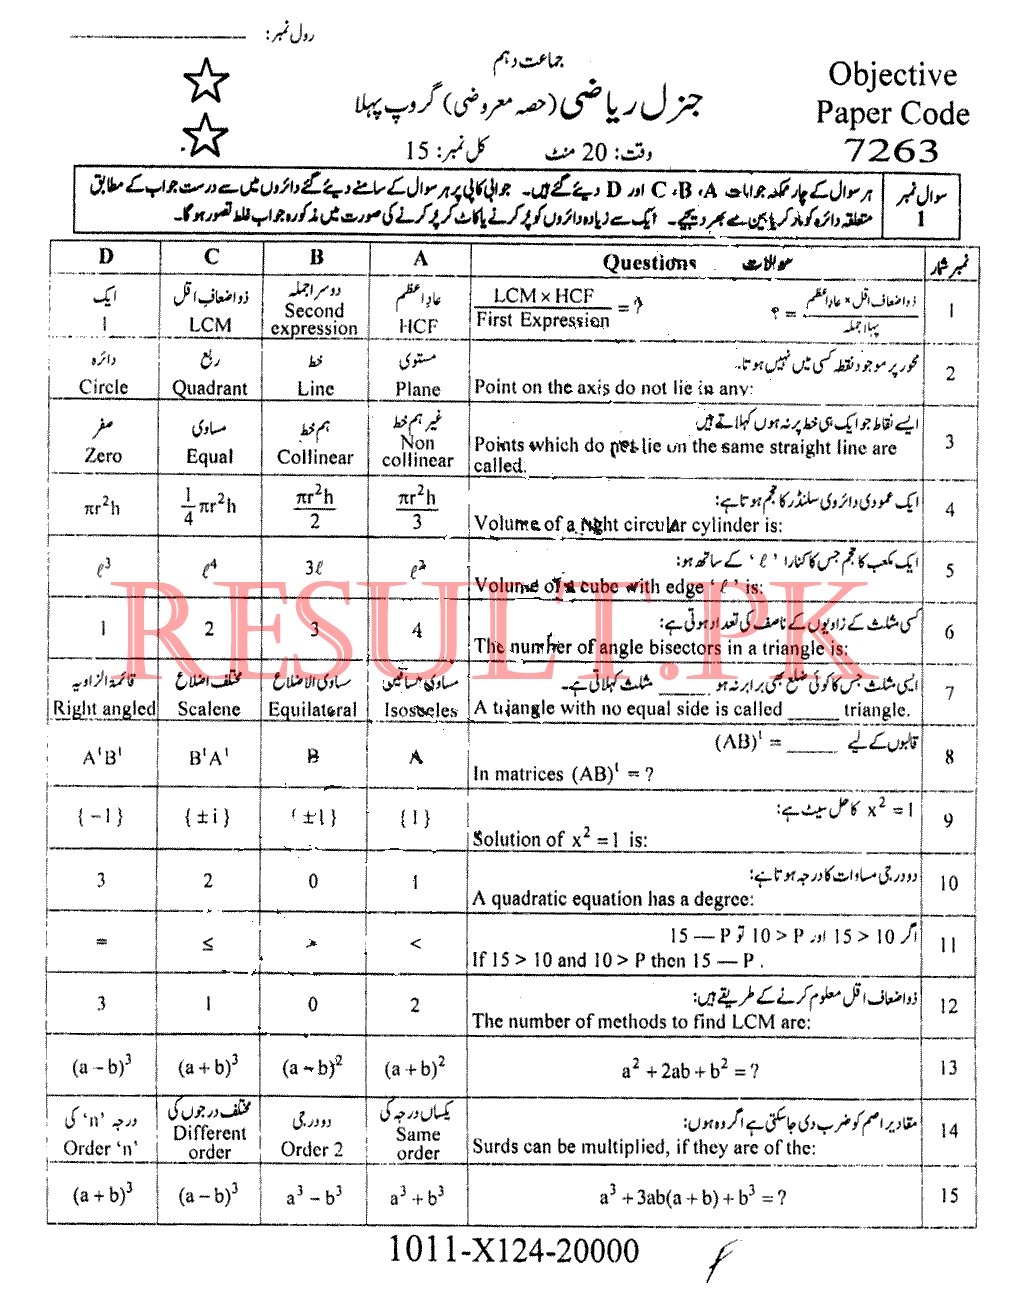 رول نمبر:
جماعت دہم
جنرل ریاضی (حصہ معروضی) گروپ پہلا
وقت: 20 منٹ کل نمبر: 15
Objective
Paper Code
7263
سوال نمبر 1
ہر سوال کے چار ممکنہ جوابات A، B، C اور D دیئے گئے ہیں۔ جوابی کاپی پر ہر سوال کے سامنے دیئے گئے دائروں میں سے درست جواب کے مطابق
متعلقہ دائرہ کو مارکر یا پین سے بھر دیجیے۔ ایک سے زیادہ دائروں کو پُر کرنے یا کاٹ کر پُر کرنے کی صورت میں مذکورہ جواب غلط تصور ہوگا۔
D C B A Questions سوالات نمبر شمار
ایک ذواضعاف اقل دوسرا جملہ عاد اعظم LCM × HCF / First Expression = ? ذواضعاف اقل × عاد اعظم / پہلا جملہ = ؟ 1
1 LCM Second expression HCF
دائرہ ربع خط مستوی محور پر موجود نقطہ کسی میں نہیں ہوتا۔ 2
Circle Quadrant Line Plane Point on the axis do not lie in any:
صفر مساوی ہم خط غیر ہم خط ایسے نقاط جو ایک ہی خط پر نہ ہوں کہلاتے ہیں 3
Zero Equal Collinear Non collinear Points which do not lie on the same straight line are
called.
πr²h 1/4 πr²h πr²h/2 πr²h/3 ایک عمودی دائروی سلنڈر کا حجم ہوتا ہے: 4
Volume of a right circular cylinder is:
ℓ³ ℓ⁴ 3ℓ ℓ² ایک مکعب کا حجم جس کا کنارا ‘ℓ’ کے ساتھ ہو: 5
Volume of a cube with edge ‘ℓ’ is:
1 2 3 4 کسی مثلث کے زاویوں کے ناصف کی تعداد ہوتی ہے: 6
The number of angle bisectors in a triangle is:
قائمۃ الزاویہ مختلف اضلاع مساوی الاضلاع مساوی الساقین ایسی مثلث جس کا کوئی ضلع بھی برابر نہ ہو ______ مثلث کہلاتی ہے۔ 7
Right angled Scalene Equilateral Isosceles A triangle with no equal side is called ______ triangle.
AᵗBᵗ BᵗAᵗ B A قالبوں کے لیے (AB)ᵗ = ______ 8
In matrices (AB)ᵗ = ?
{−1} {±i} {±1} {1} x² = 1 کا حل سیٹ ہے: 9
Solution of x² = 1 is:
3 2 0 1 دو درجی مساوات کا درجہ ہوتا ہے: 10
A quadratic equation has a degree:
= ≤ > < اگر 15 > 10 اور 10 > P تو 15 — P 11
If 15 > 10 and 10 > P then 15 — P .
3 1 0 2 ذواضعاف اقل معلوم کرنے کے طریقے ہیں: 12
The number of methods to find LCM are:
(a − b)³ (a + b)³ (a − b)² (a + b)² a² + 2ab + b² = ? 13
درجہ ‘n’ کی مختلف درجوں کی دو درجی یکساں درجہ کی مقادیر اصم کو ضرب دی جاسکتی ہے اگر وہ ہوں: 14
Order ‘n’ Different order Order 2 Same order Surds can be multiplied, if they are of the:
(a + b)³ (a − b)³ a³ − b³ a³ + b³ a³ + 3ab(a + b) + b³ = ? 15
1011-X124-20000
RESULT.PK